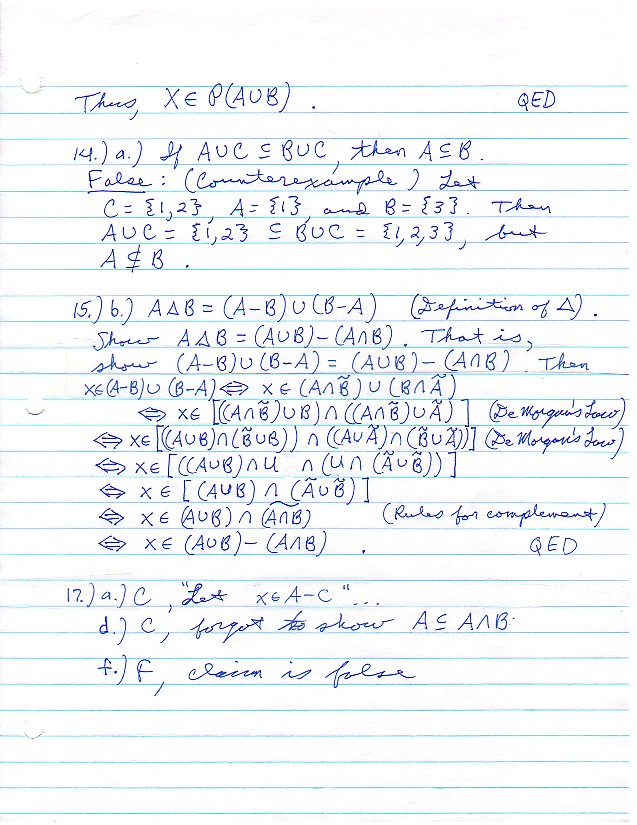 Thus, X ∈ P(A∪B). QED
14.) a.) If A∪C ⊆ B∪C, then A⊆B.
False: (Counterexample) Let
C = {1,2}, A = {1}, and B = {3}. Then
A∪C = {1,2} ⊆ B∪C = {1,2,3}, but
A ⊈ B.
15.) b.) A∆B = (A−B)∪(B−A) (Definition of ∆).
Show A∆B = (A∪B)−(A∩B). That is,
show (A−B)∪(B−A) = (A∪B)−(A∩B). Then
x∈(A−B)∪(B−A) ⇔ x∈(A∩B̃)∪(B∩Ã)
⇔ x∈[((A∩B̃)∪B)∩((A∩B̃)∪Ã)] (De Morgan's Law)
⇔ x∈[((A∪B)∩(B̃∪B))∩((A∪Ã)∩(B̃∪Ã))] (De Morgan's Law)
⇔ x∈[((A∪B)∩U ∩(U∩(Ã∪B̃))]
⇔ x∈[(A∪B)∩(Ã∪B̃)]
⇔ x∈(A∪B)∩(A͠∩B) (Rules for complement)
⇔ x∈(A∪B)−(A∩B). QED
17.) a.) C, "Let x∈A−C"...
d.) C, forgot to show A⊆A∩B.
f.) F, claim is false